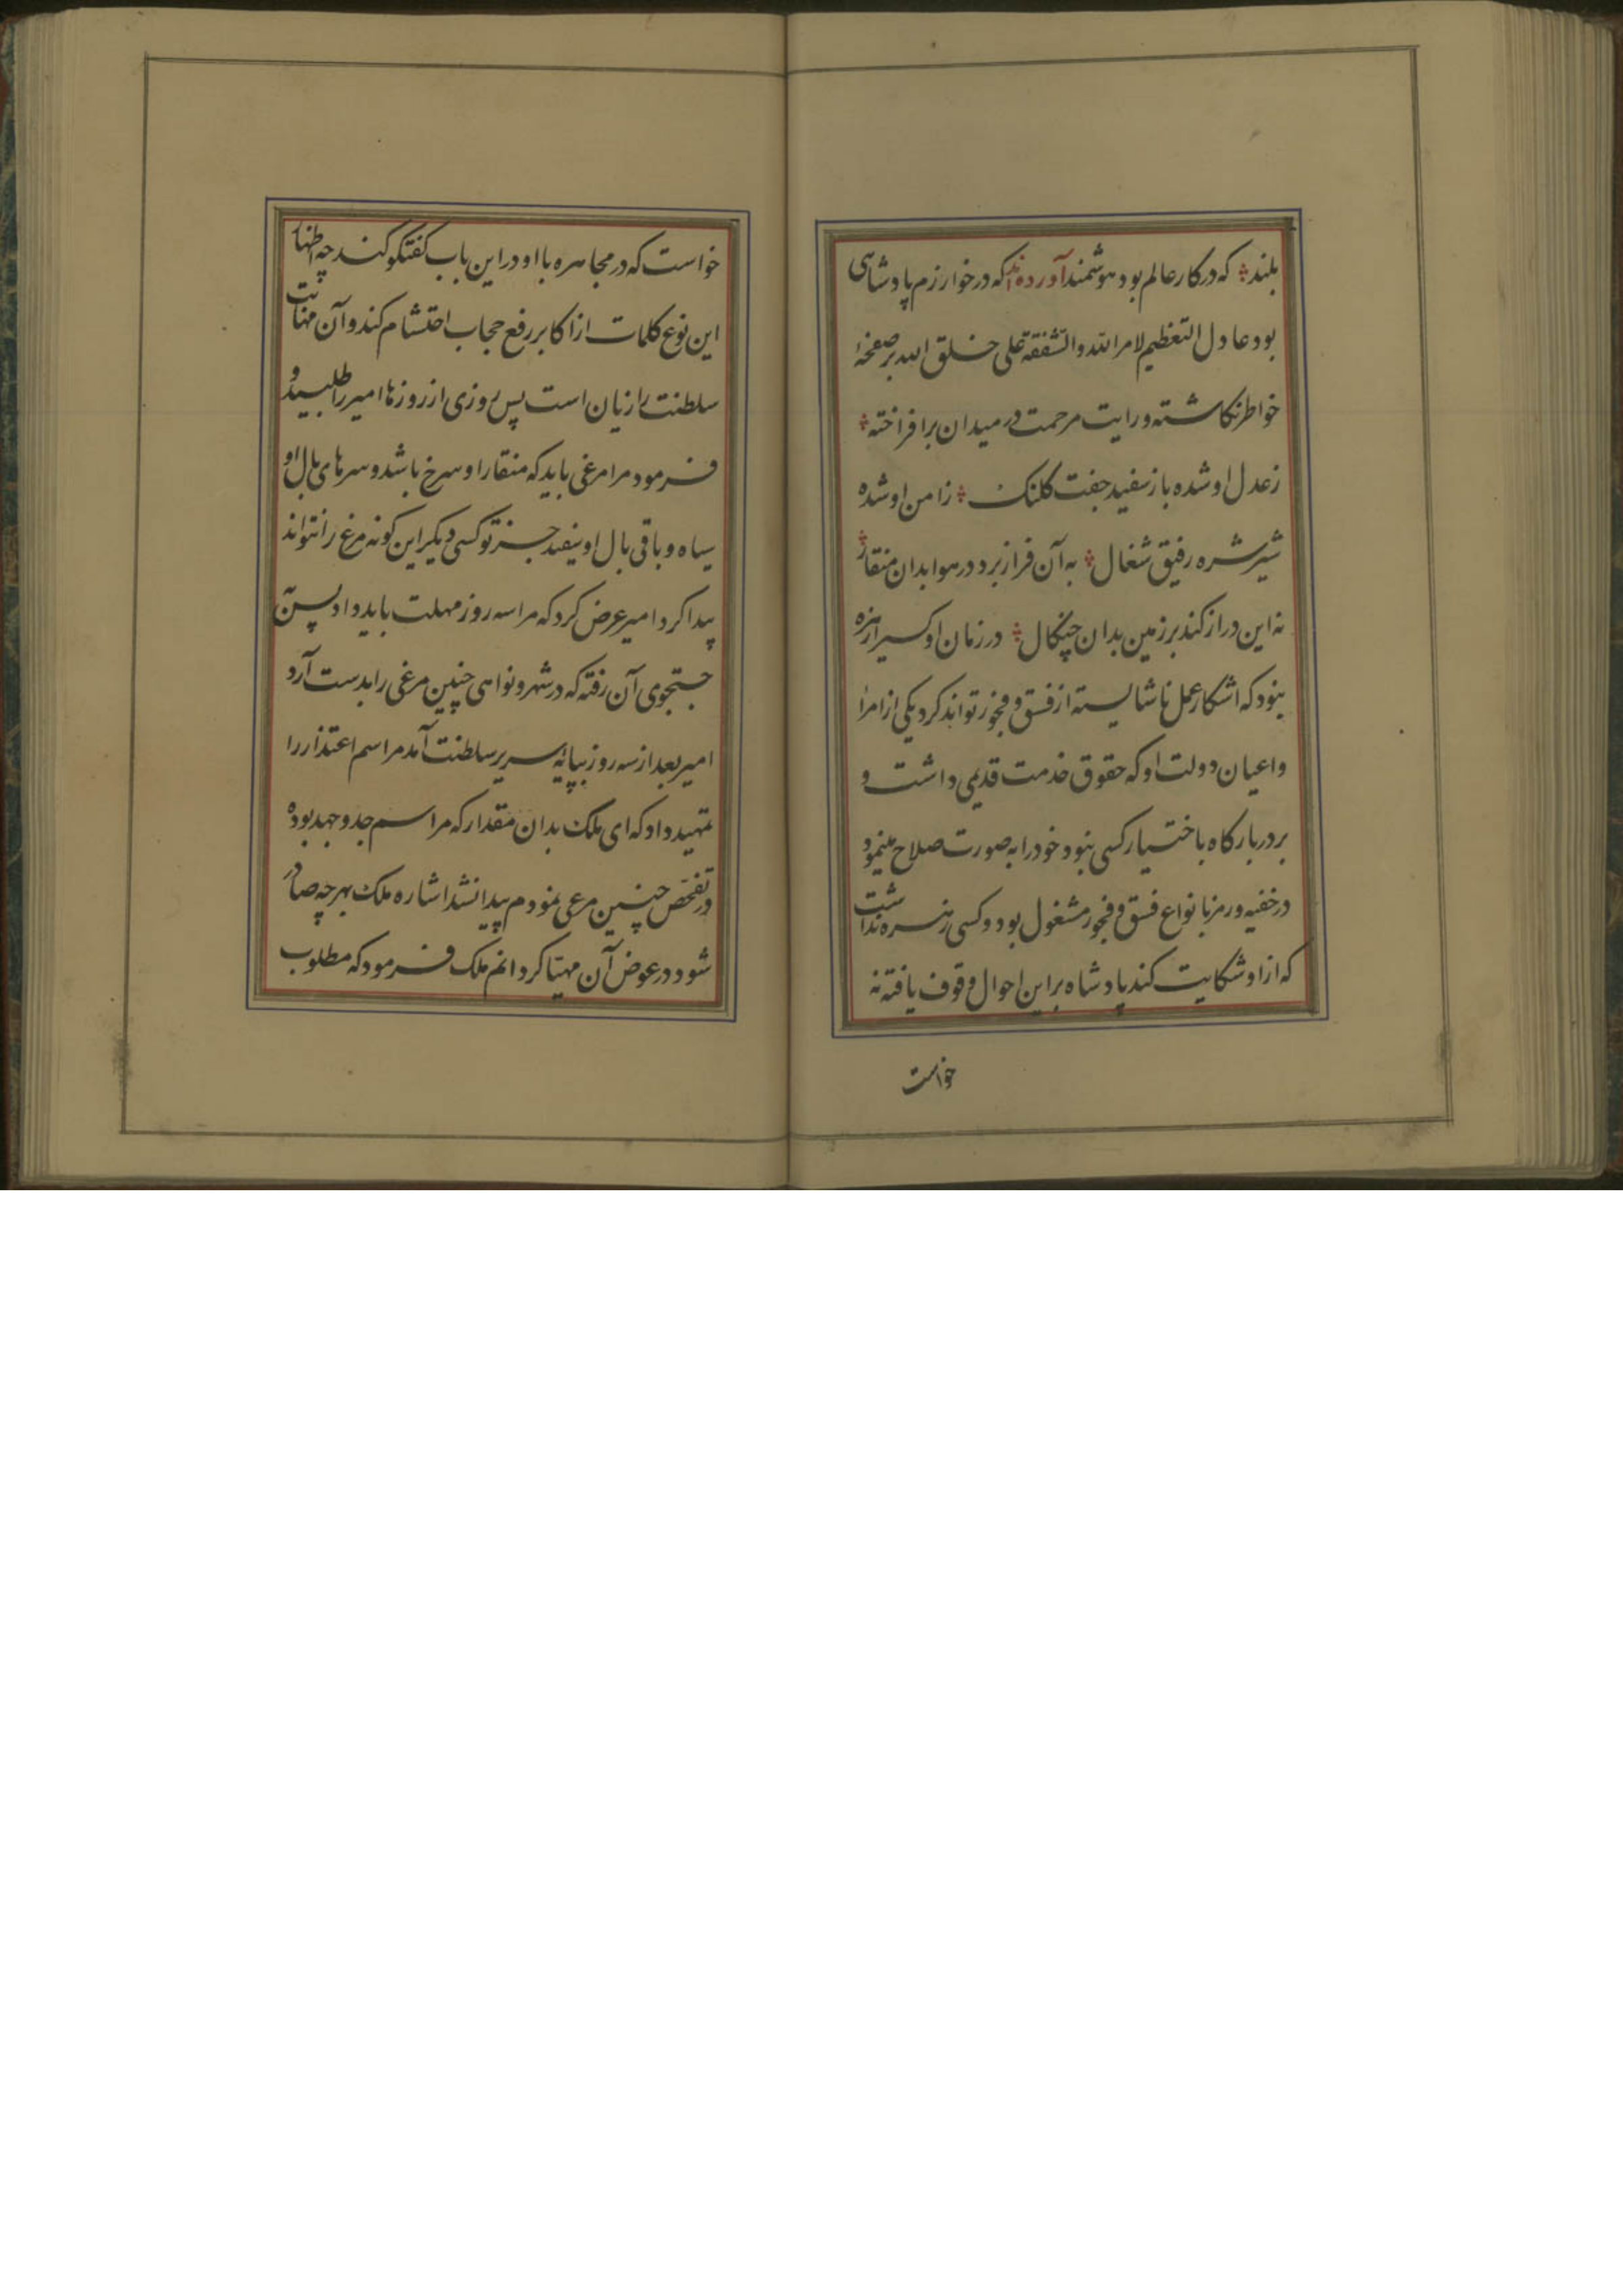 بلند که در کار عالم بود هوشمند آورده اند که در خوارزم پادشاهی
بود عادل التعظیم لامر الله والشفقة علی خلق الله بر صفحهٔ
خواطر نکاشته و رایت مرحمت در میدان برافراخته
ز عدل او شده باز سفید جفت کلنک ز امن او شده
شیر شرزه رفیق شغال به آن فراز برد در هوا بدان منقار
نه این دراز کند بر زمین بدان چنکال در زمان او کسیرا زهره
نبود که اشکار عمل ناشایسته از فسق و فجور تواند کرد یکی از امرا
و اعیان دولت او که حقوق خدمت قدیمی داشت و
بر دربارکاه باختیار کسی نبود خود را به صورت صلاح مینمود
در خفیه و رمز بانواع فسق و فجور مشغول بود و کسی زهره نداشت
که از او شکایت کند پادشاه براین احوال وقوف یافته نه
خواست
خواست که در مجاهره با او در این باب کفتکو کند چه اظهار
این نوع کلمات از اکابر رفع حجاب احتشام کند و آن مهابت
سلطنت را زیان است پس روزی از روزها امیر را طلبید و
فرمود مرا مرغی باید که منقار او سرخ باشد و سرهای بال او
سیاه و باقی بال او سفید جز تو کسی دیکر این کونه مرغ را نتواند
پیدا کرد امیر عرض کرد که مرا سه روز مهلت باید داد پس
جستجوی آن رفته که در شهر و نواهی چنین مرغی را بدست آرد
امیر بعد از سه روز بپایهٔ سریر سلطنت آمد مراسم اعتذار را
تمهید داد که ای ملک بدان مقدار که مراسم جد و جهد بوده
در تفحص چنین مرغی نمودم پیدا نشد اشاره ملک بهرچه صادر
شود در عوض آن مهیا کردانم ملک فرمود که مطلوب